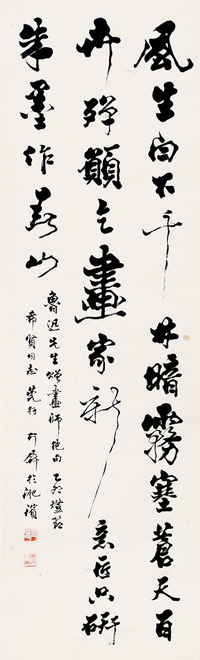 風生白下千林暗霧塞蒼天百
卉殫願乞畫家新意匠只研
朱墨作春山
魯迅先生贈畫師絕句 乙卯燈節
希賢同志 屏於淞濱